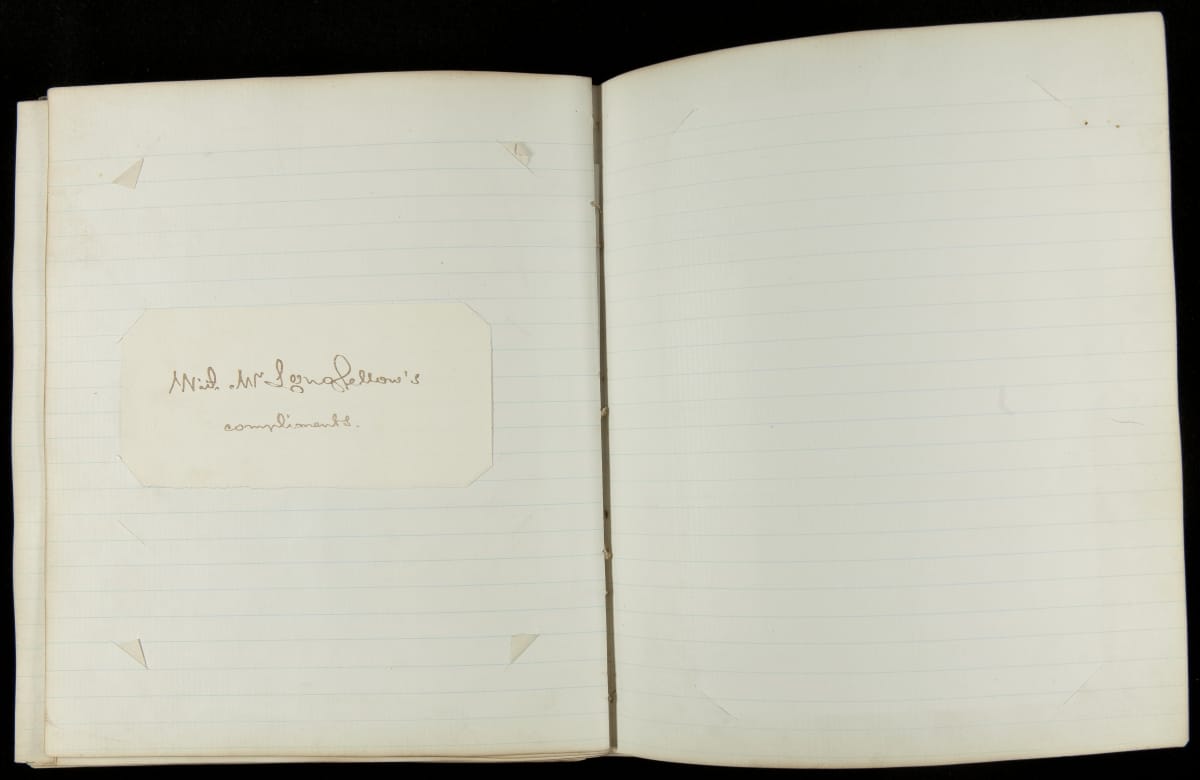 Mr Longfellow's
compliments.